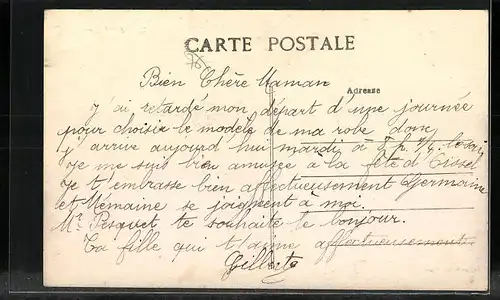 CARTE POSTALE
Bien Chère Maman
Adresse
J'ai retardé mon départ d'une journée
pour choisir le modèle de ma robe donc
j'arrive aujourd'hui mardi à 5 h. 1/4 le soir
Je me suis bien amusée à la fête d'
Je t'embrasse bien affectueusement Germaine
et Mémaine se joignent à moi.
Mr Pesquet te souhaite le bonjour.
Ta fille qui t'aime affectueusement.
Gilberte